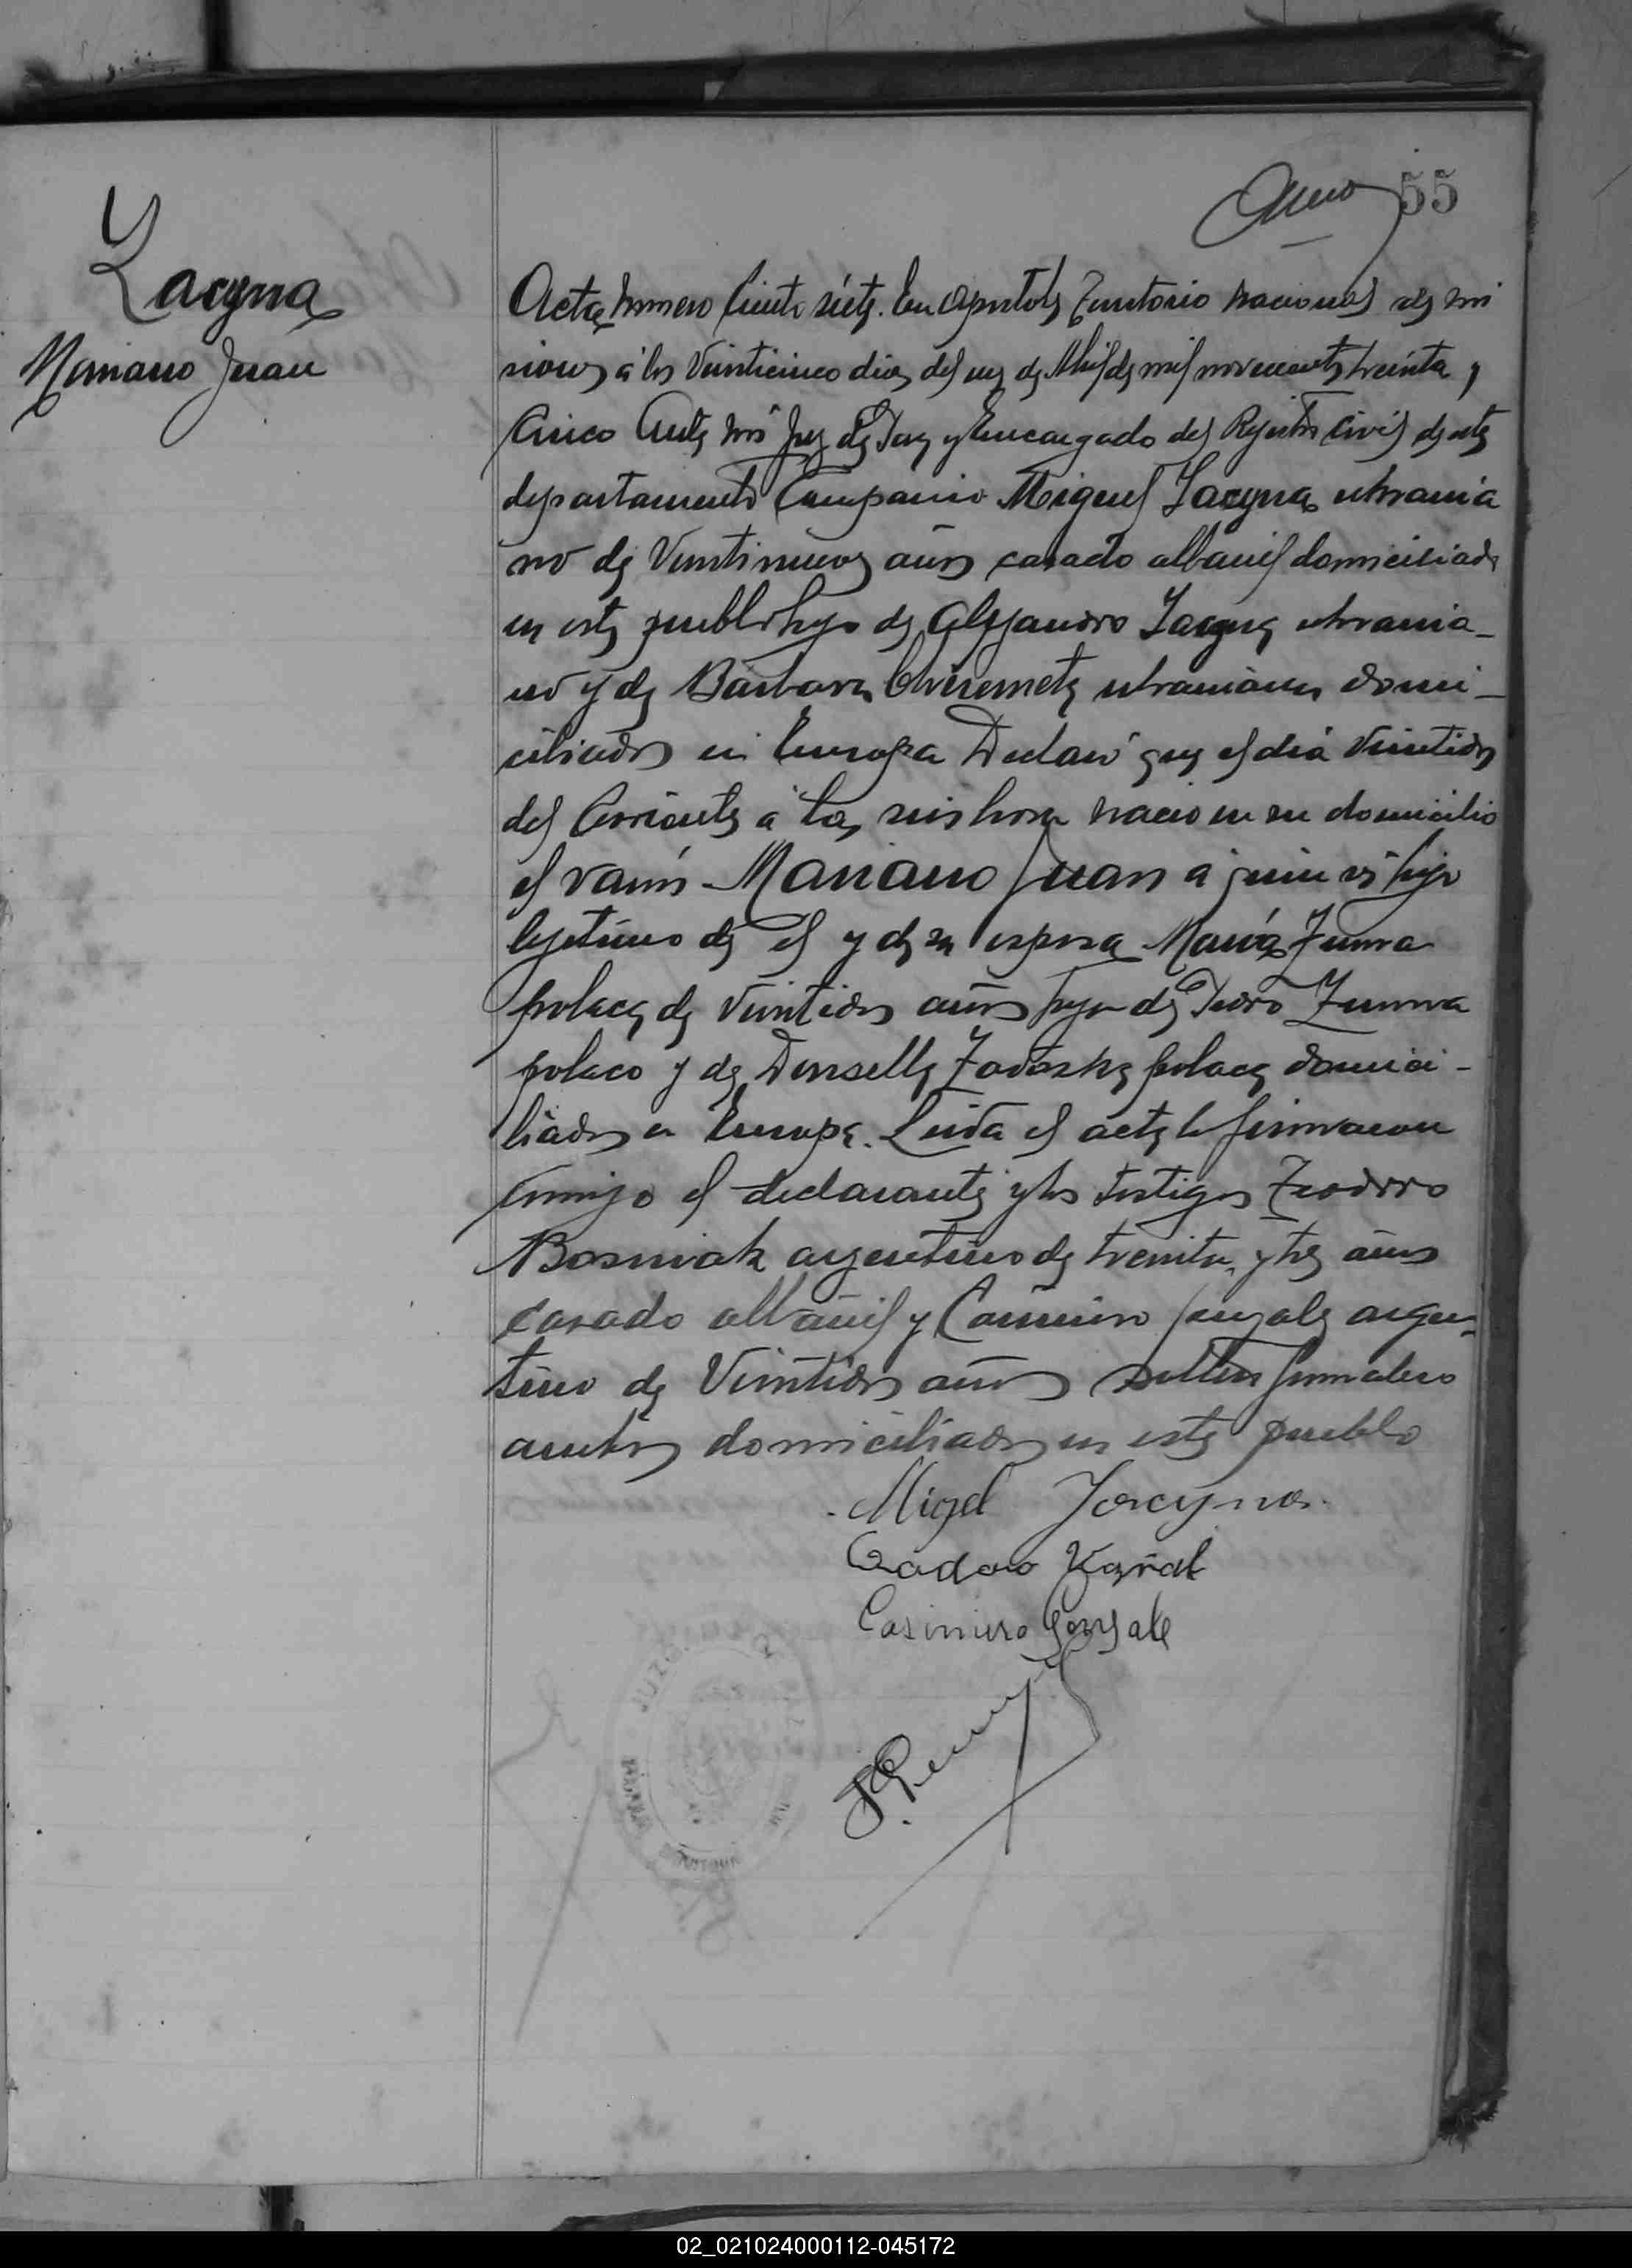 55
Yacyna
Mariano Juan
Acta número Ciento siete. En Apostoles Territorio nacional de Mi
siones á los Veinticinco dias del mes de Abril de mil novecientos treinta y
Cinco Ante mi Juez de Paz y Encargado del Rejistro Civil de este
departamento Comparecio Miguel Yacyna ukrania
no de Veintinueve años casado albañil domiciliado
en este pueblo hijo de Alejandro Yacyna ukrania-
no y de Barbara ukraniana domi-
ciliados en Europa Declaró que el dia Veintidos
del Corriente á las seis horas nacio en su domicilio
el varón Mariano Juan a quien es hijo
lejitimo de el y de su esposa María
polaca de Veintidos años hija de Pedro
polaco y de polaca domici-
liados en Europa. Leida el acta la firmaron
conmigo el declarante y los testigos Teodoro
Bosniak argentino de treinta y tres años
casado albañil y Casimiro Gonzales argen-
tino de Veintidos años soltero jornalero
ambos domiciliados en este pueblo
Migel Jacyna
Casimiro Gonzale
02_021024000112-045172